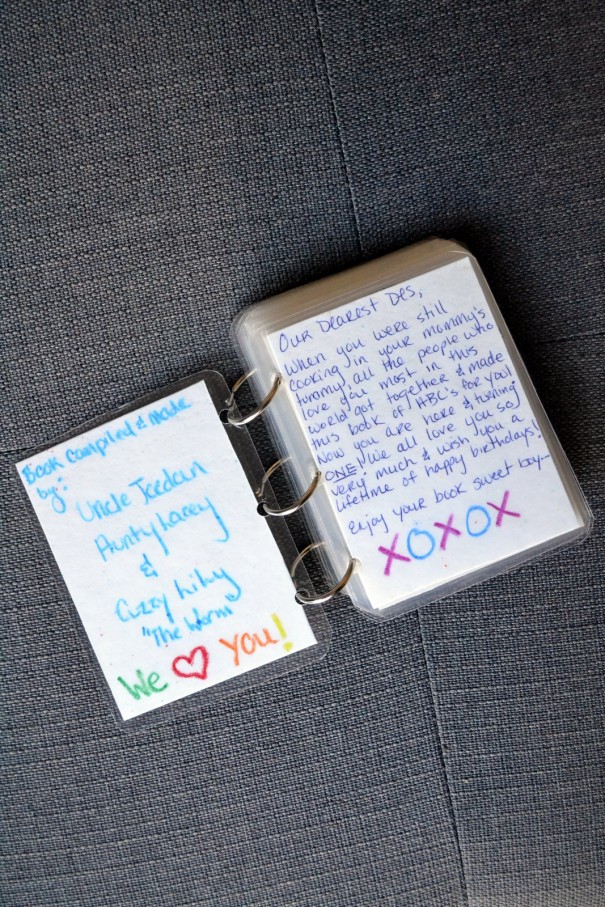 Book Compiled & Made
by:
Uncle Jordan
Aunty Lacey
&
Cuzzy Lily
"The Worm"
We ♡ You!
Our Dearest Des,
When you were still
cooking in your mommy's
tummy, all the people who
love you most in this
world got together & made
this book of ABC's for you!
Now you are here & turning
ONE! We all love you so
very much & wish you a
lifetime of happy birthdays!
Enjoy your book sweet boy—
XOXOX